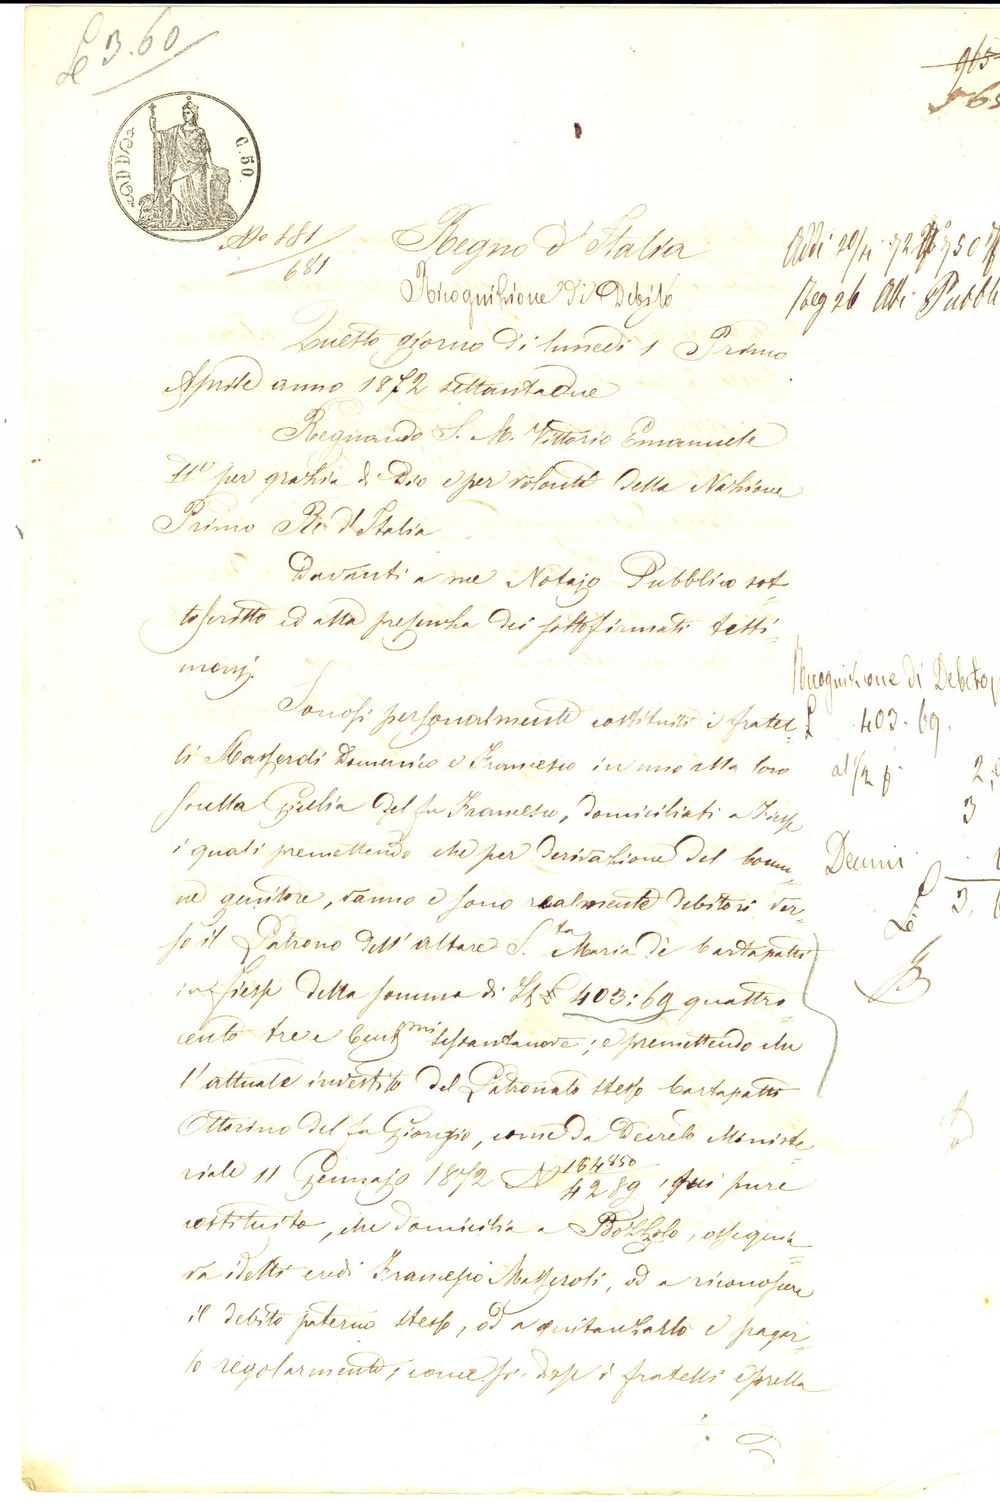 £ 3.60
965
565
C. 50.
No 181
681
Regno d'Italia
Ricognizione di Debito
Addi 20/4 72
Reg 26 Atti Pubbli
Questo giorno di lunedì 1 Primo
Aprile anno 1872 settantadue
Regnando S. M. Vittorio Emanuele
II° per grazia di Dio e per volontà della Nazione
Primo Re d'Italia
Davanti a me Notajo Pubblico sot=
toscritto ed alla presenza dei sottofirmati testi=
monj.
Sonosi personalmente costituiti i fratel=
li Masseroli Domenico e Francesco in uno alla loro
sorella Giulia del fu Francesco, domiciliati a Fiesse
i quali premettendo che per derivazione del comu=
ne genitore, vanno e sono realmente debitori ver=
so il Patrono dell'altare S.ta Maria de Cartapatti
in Fiesse della somma di It £ 403:69 quattro=
cento tre e Centmi sessantanove; e premettendo che
l'attuale investito del Patronato stesso Cartapatti
Ottorino del fu Giorgio, come da Decreto Ministe=
riale 11 Gennajo 1872 N 184850
4289, qui pure
costituito, che domicilia a Bozzolo,
va i detti eredi Francesco Masseroli, od a riconoscere
il debito paterno stesso, od a quitanzarlo e pagar=
lo regolarmente; come si disse i fratelli e sorella
Ricognizione di Debito
£ 403.69.
al 1/2 p.
3
Decimi
Lire
3,